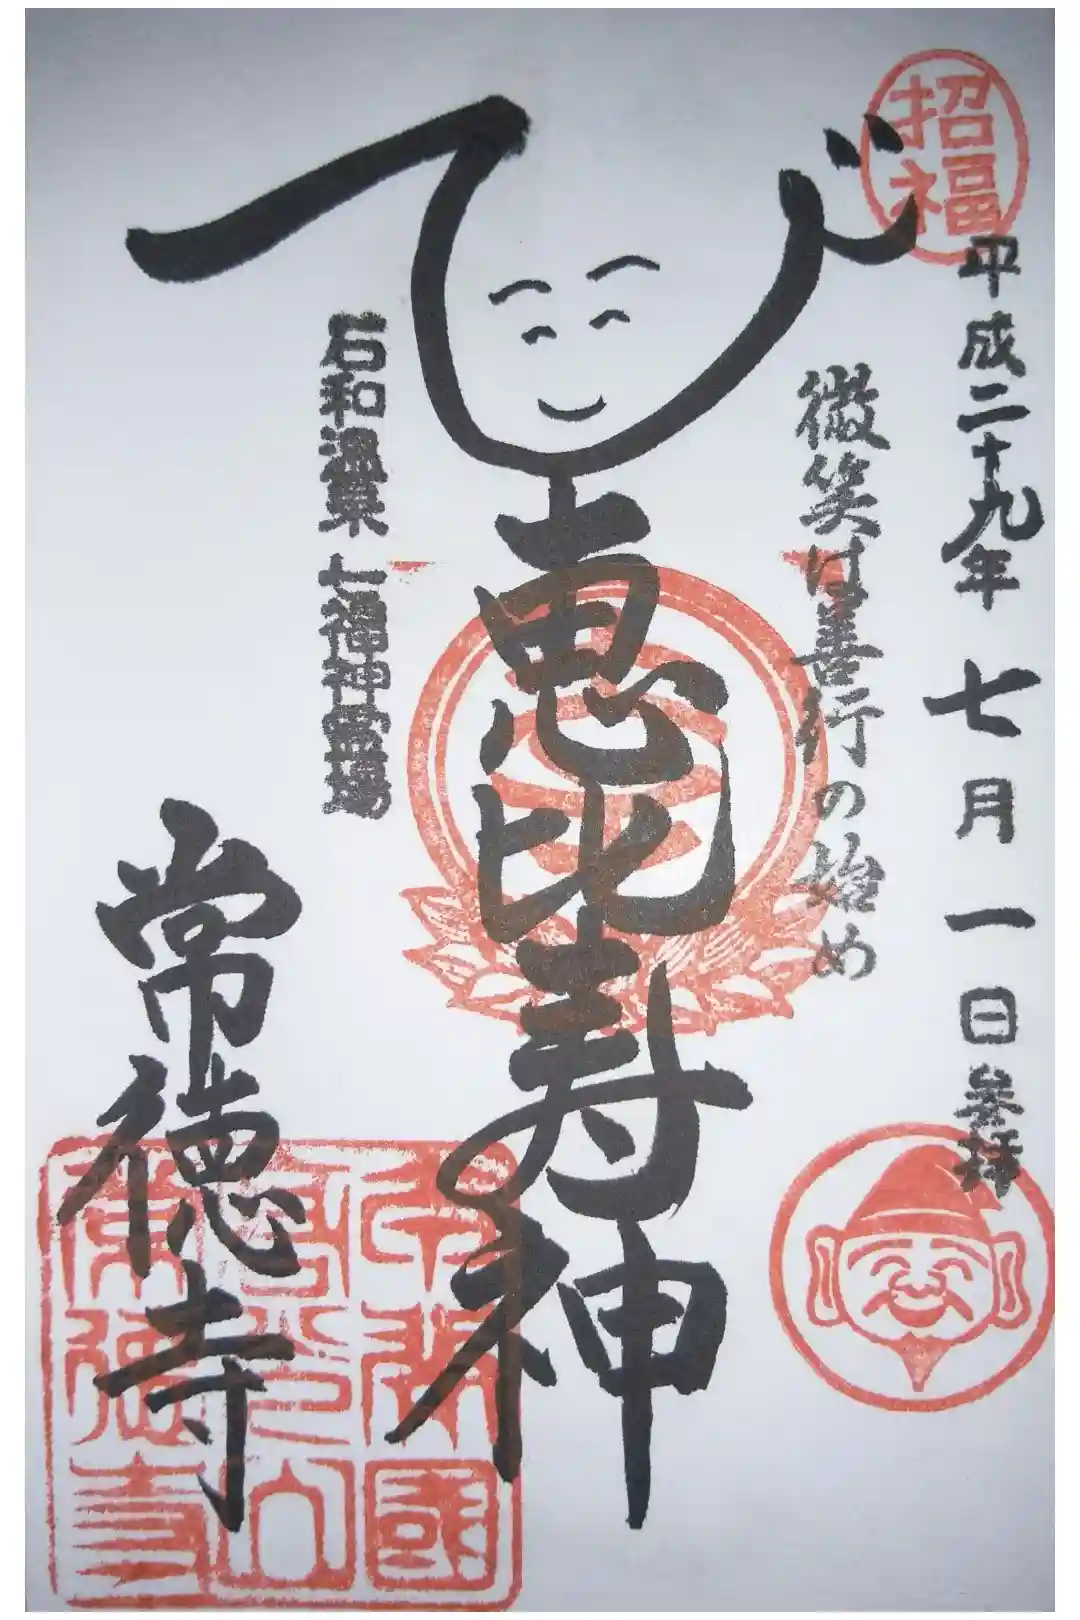 招福
平成二十九年 七月一日参拝
微笑は善行の始め
び
恵比寿神
石和温泉 七福神霊場
常徳寺